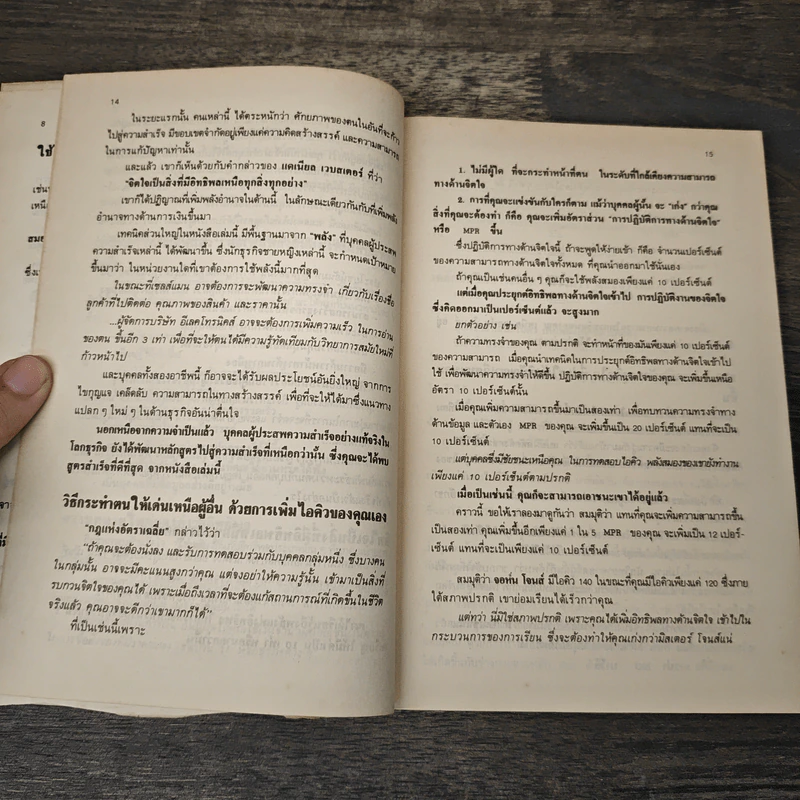 8
ใช้
14
ในระยะแรกนั้น คนเหล่านี้ ได้ตระหนักว่า ศักยภาพของตนในอันที่จะก้าว
ไปสู่ความสำเร็จ มีขอบเขตจำกัดอยู่เพียงแค่ความคิดสร้างสรรค์ และความสามารถ
ในการแก้ปัญหาเท่านั้น
และแล้ว เขาก็เห็นด้วยกับคำกล่าวของ แดเนียล เวบสเตอร์ ที่ว่า
"จิตใจเป็นสิ่งที่มีอิทธิพลเหนือทุกสิ่งทุกอย่าง"
เขาก็ได้ปฏิญาณที่เพิ่มพลังอำนาจในด้านนี้ ในลักษณะเดียวกันกับที่เพิ่มพลัง
อำนาจทางด้านการเงินขึ้นมา
เทคนิคส่วนใหญ่ในหนังสือเล่มนี้ มีพื้นฐานมาจาก "พลัง" ที่บุคคลผู้ประสพ
ความสำเร็จเหล่านี้ ได้พัฒนาขึ้น ซึ่งนักธุรกิจชายหญิงเหล่านี้ จะกำหนดเป้าหมาย
ขึ้นมาว่า ในหน่วยงานใดที่เขาต้องการใช้พลังนี้มากที่สุด
ในขณะที่เซลส์แมน อาจต้องการจะพัฒนาความทรงจำ เกี่ยวกับเรื่องชื่อ
ลูกค้าที่ไปติดต่อ คุณภาพของสินค้า และราคานั้น
...ผู้จัดการบริษัท อีเลคโทรนิคส์ อาจจะต้องการเพิ่มความเร็ว ในการอ่าน
ของตน ขึ้นอีก 3 เท่า เพื่อที่จะให้ตนได้มีความรู้ทัดเทียมกับวิทยาการสมัยใหม่ที่
ก้าวหน้าไป
และบุคคลทั้งสองอาชีพนี้ ก็อาจจะได้รับผลประโยชน์อันยิ่งใหญ่ จากการ
ไขกุญแจ เคล็ดลับ ความสามารถในทางสร้างสรรค์ เพื่อที่จะให้ได้มาซึ่งแนวทาง
แปลก ๆ ใหม่ ๆ ในด้านธุรกิจอันน่าตื่นใจ
นอกเหนือจากความจำเป็นแล้ว บุคคลผู้ประสพความสำเร็จอย่างแท้จริงใน
โลกธุรกิจ ยังได้พัฒนาหลักสูตรไปสู่ความสำเร็จที่เหนือกว่านั้น ซึ่งคุณจะได้พบ
สูตรสำเร็จที่ดีที่สุด จากหนังสือเล่มนี้
วิธีกระทำตนให้เด่นเหนือผู้อื่น ด้วยการเพิ่มไอคิวของคุณเอง
"กฎแห่งอัตราเฉลี่ย" กล่าวไว้ว่า
"ถ้าคุณจะต้องนั่งลง และรับการทดสอบร่วมกับบุคคลกลุ่มหนึ่ง ซึ่งบางคน
ในกลุ่มนั้น อาจจะมีคะแนนสูงกว่าคุณ แต่จงอย่าให้ความรู้นั้น เข้ามาเป็นสิ่งที่
รบกวนจิตใจของคุณได้ เพราะเมื่อถึงเวลาที่จะต้องแก้สถานการณ์ที่เกิดขึ้นในชีวิต
จริงแล้ว คุณอาจจะดีกว่าเขามากก็ได้"
ที่เป็นเช่นนี้เพราะ
15
1. ไม่มีผู้ใด ที่จะกระทำหน้าที่ตน ในระดับที่ใกล้เคียงความสามารถ
ทางด้านจิตใจ
2. การที่คุณจะแข่งขันกับใครก็ตาม แม้ว่าบุคคลผู้นั้น จะ "เก่ง" กว่าคุณ
สิ่งที่คุณจะต้องทำ ก็คือ คุณจะเพิ่มอัตราส่วน "การปฏิบัติการทางด้านจิตใจ"
หรือ MPR ขึ้น
ซึ่งปฏิบัติการทางด้านจิตใจนี้ ถ้าจะพูดให้ง่ายเข้า ก็คือ จำนวนเปอร์เซ็นต์
ของความสามารถทางด้านจิตใจทั้งหมด ที่คุณนำออกมาใช้นั่นเอง
ถ้าคุณเป็นเช่นคนอื่น ๆ คุณก็จะใช้พลังสมองของคุณเพียงแค่ 10 เปอร์เซ็นต์
แต่เมื่อคุณประยุกต์อิทธิพลทางด้านจิตใจเข้าไป การปฏิบัติงานของจิตใจ
ซึ่งคิดออกมาเป็นเปอร์เซ็นต์แล้ว จะสูงมาก
ยกตัวอย่าง เช่น
ถ้าความทรงจำของคุณ ตามปรกติ จะทำหน้าที่ของมันเพียงแค่ 10 เปอร์เซ็นต์
ของความสามารถ เมื่อคุณนำเทคนิคในการประยุกต์อิทธิพลทางด้านจิตใจเข้าไป
ใช้ เพื่อพัฒนาความทรงจำให้ดีขึ้น ปฏิบัติการทางด้านจิตใจของคุณ จะเพิ่มขึ้นเหนือ
อัตรา 10 เปอร์เซ็นต์นั้น
เมื่อคุณเพิ่มความสามารถขึ้นมาเป็นสองเท่า เพื่อทบทวนความทรงจำทาง
ด้านข้อมูล และตัวเอง MPR ของคุณ จะเพิ่มขึ้นเป็น 20 เปอร์เซ็นต์ แทนที่จะเป็น
10 เปอร์เซ็นต์
แต่บุคคลซึ่งมีชัยชนะเหนือคุณ ในการทดสอบไอคิว พลังสมองของเขายังทำงาน
เพียงแค่ 10 เปอร์เซ็นต์ตามปรกติ
เมื่อเป็นเช่นนี้ คุณก็จะสามารถเอาชนะเขาได้อยู่แล้ว
คราวนี้ ขอให้เราลองมาดูกันว่า สมมุติว่า แทนที่คุณจะเพิ่มความสามารถขึ้น
เป็นสองเท่า คุณเพิ่มขึ้นอีกเพียงแค่ 1 ใน 5 MPR ของคุณ จะเพิ่มเป็น 12 เปอร์-
เซ็นต์ แทนที่จะเป็นเพียงแค่ 10 เปอร์เซ็นต์
สมมุติว่า จอห์น โจนส์ มีไอคิว 140 ในขณะที่คุณมีไอคิวเพียงแค่ 120 ซึ่งภาย
ใต้สภาพปรกติ เขาย่อมเรียนได้เร็วกว่าคุณ
แต่ทว่า นี่มิใช่สภาพปรกติ เพราะคุณได้เพิ่มอิทธิพลทางด้านจิตใจ เข้าไปใน
กระบวนการของการเรียน ซึ่งจะต้องทำให้คุณเก่งกว่ามิสเตอร์ โจนส์แน่